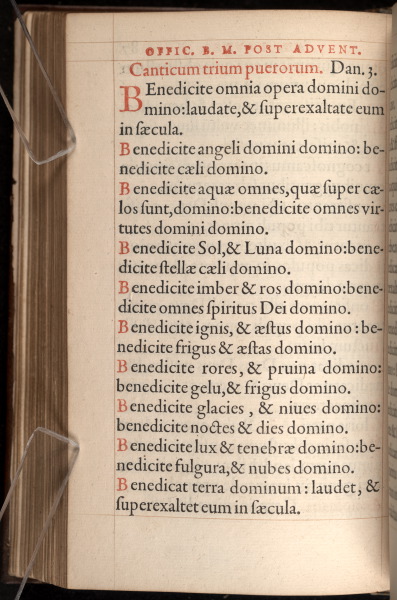 OFFIC. B. M. POST ADVENT.
Canticum trium puerorum. Dan. 3.
BEnedicite omnia opera domini do-
mino:laudate,& ſuperexaltate eum
in ſæcula.
Benedicite angeli domini domino: be-
nedicite cæli domino.
Benedicite aquæ omnes,quæ ſuper cæ-
los ſunt,domino:benedicite omnes vir-
tutes domini domino.
Benedicite Sol,& Luna domino:bene-
dicite ſtellæ cæli domino.
Benedicite imber & ros domino:bene-
dicite omnes ſpiritus Dei domino.
Benedicite ignis, & æſtus domino : be-
nedicite frigus & æſtas domino.
Benedicite rores, & pruina domino:
benedicite gelu,& frigus domino.
Benedicite glacies , & niues domino:
benedicite noctes & dies domino.
Benedicite lux & tenebræ domino:be-
nedicite fulgura,& nubes domino.
Benedicat terra dominum : laudet, &
ſuperexaltet eum in ſæcula.